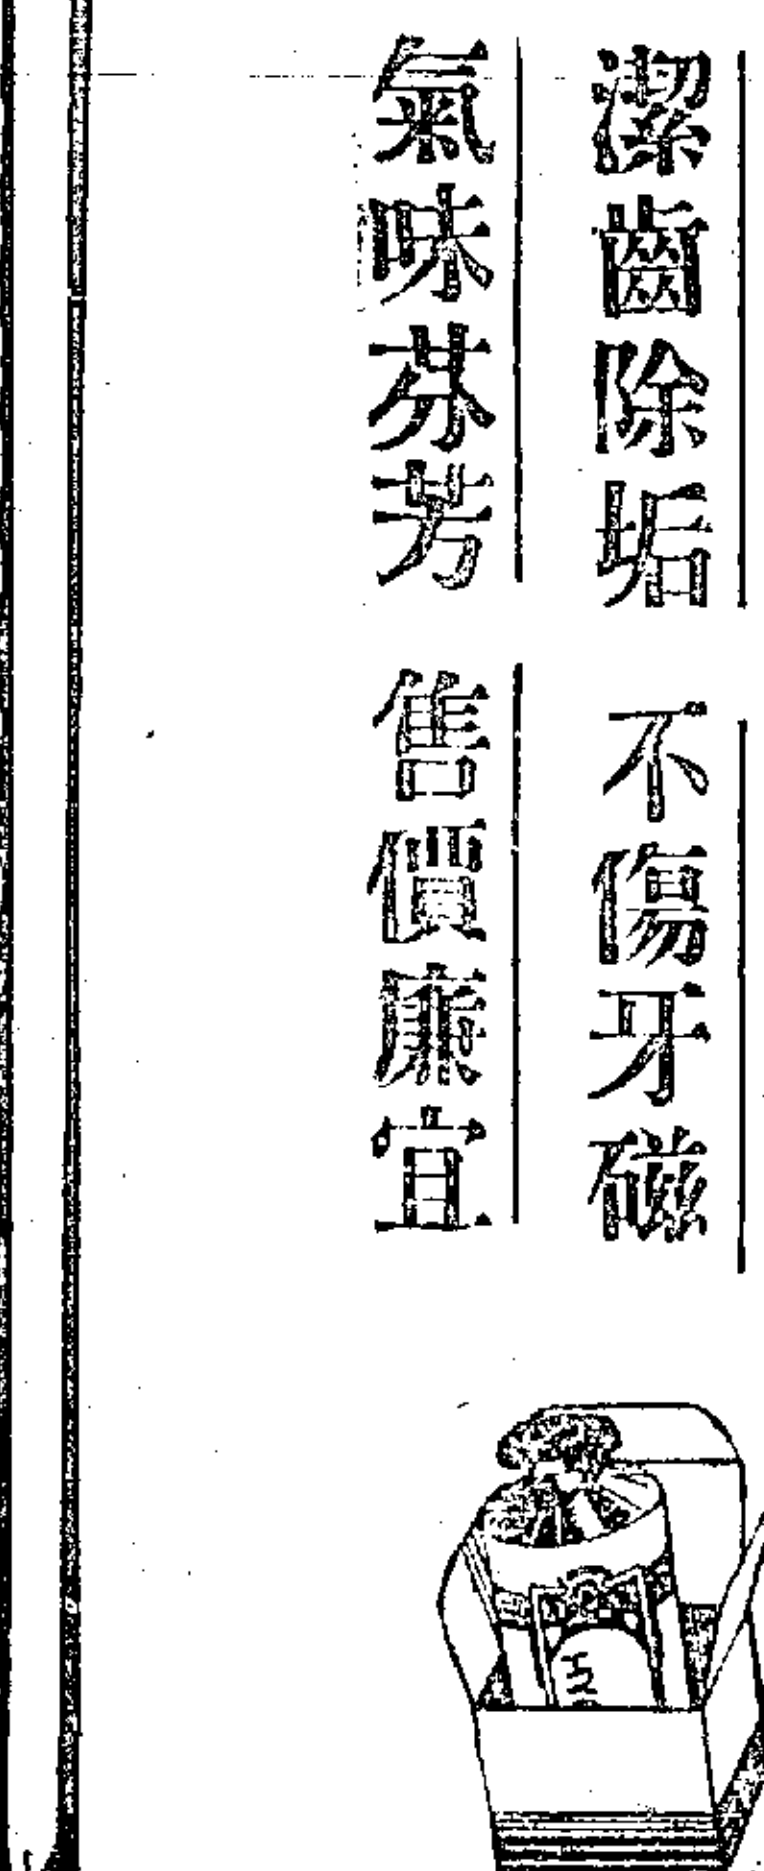 潔齒除垢　不傷牙磁
氣味芬芳　售價廉宜